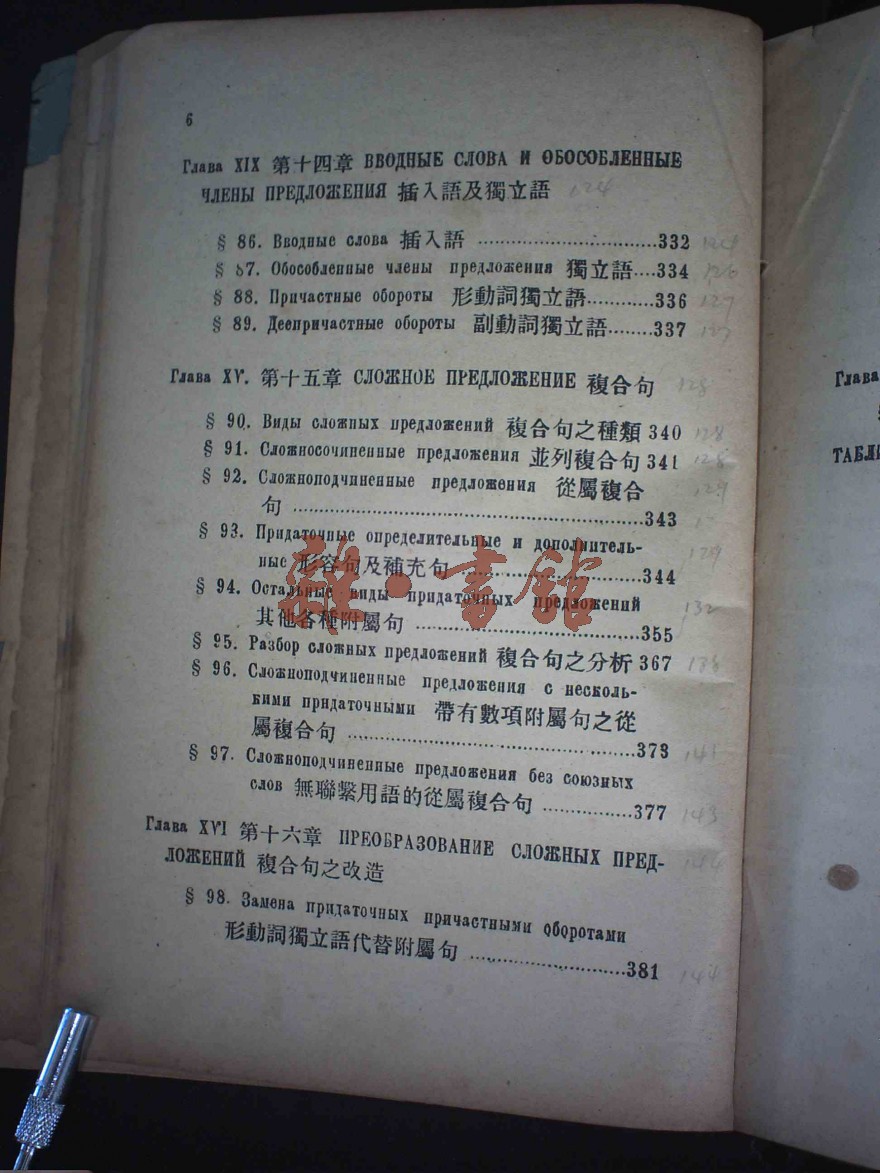 6
Глава XIX 第十四章 ВВОДНЫЕ СЛОВА И ОБОСОБЛЕННЫЕ
ЧЛЕНЫ ПРЕДЛОЖЕНИЯ 插入語及獨立語 124
§ 86. Вводные слова 插入語 ..............................332 124
§ 87. Обособленные члены предложения 獨立語....334 126
§ 88. Причастные обороты 形動詞獨立語...........336 127
§ 89. Деепричастные обороты 副動詞獨立語........337 127
Глава XV. 第十五章 СЛОЖНОЕ ПРЕДЛОЖЕНИЕ 複合句 128
§ 90. Виды сложных предложений 複合句之種類 340 128
§ 91. Сложносочиненные предложения 並列複合句 341 128
§ 92. Сложноподчиненные предложения 從屬複合 129
句 ..........................................................343
§ 93. Придаточные определительные и дополнитель- 129
ные 形容句及補充句 .............................344
§ 94. Остальные виды придаточных предложений 132
其他各種附屬句 ......................................355
§ 95. Разбор сложных предложений 複合句之分析 367 138
§ 96. Сложноподчиненные предложения с несколь-
кими придаточными 帶有數項附屬句之從
屬複合句 ................................................373 141
§ 97. Сложноподчиненные предложения без союзных
слов 無聯繫用語的從屬複合句 ...............377 143
Глава XVI 第十六章 ПРЕОБРАЗОВАНИЕ СЛОЖНЫХ ПРЕД- 144
ЛОЖЕНИЙ 複合句之改造
§ 98. Замена придаточных причастными оборотами
形動詞獨立語代替附屬句 ..........................381 144
雜·書館
Глава
ТАБЛИ